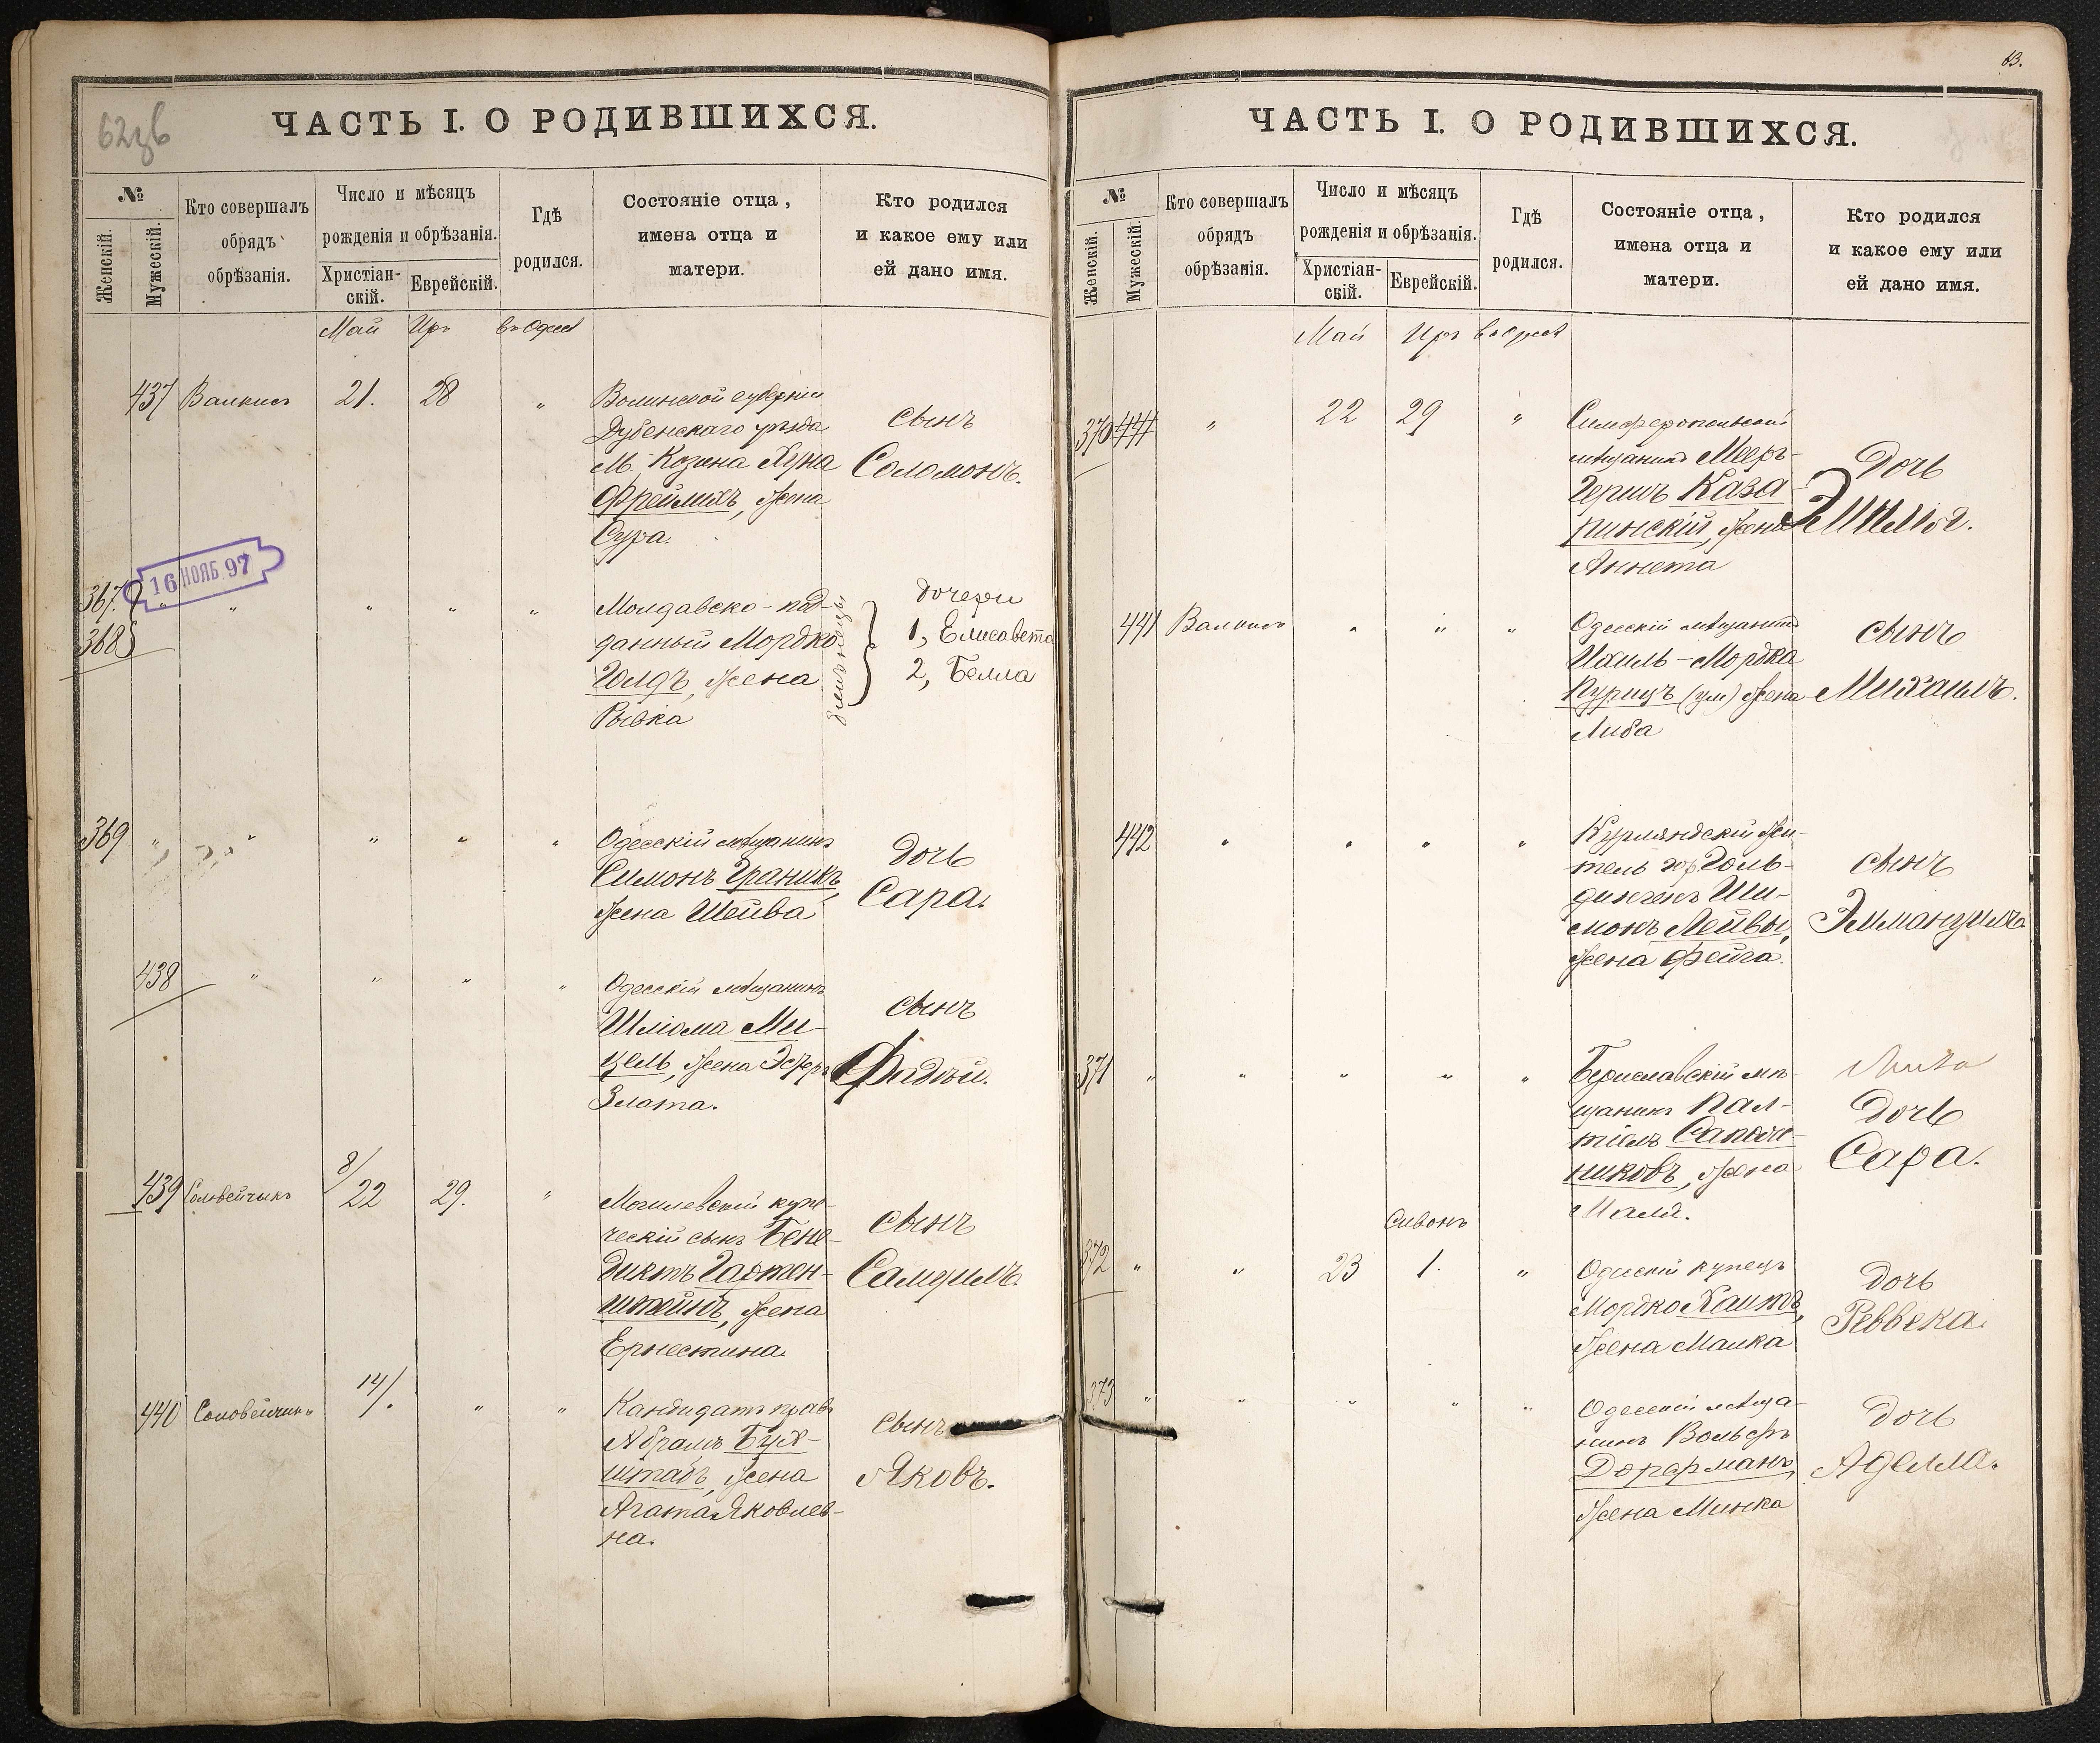 62зв
ЧАСТЬ I. О РОДИВШИХСЯ.
№
Женскій.
Мужескій.
Кто совершалъ
обрядъ
обрѣзанія.
Число и мѣсяцъ
рожденія и обрѣзанія.
Христіан-
скій.
Еврейскій.
Гдѣ
родился.
Состояніе отца,
имена отца и
матери.
Кто родился
и какое ему или
ей дано имя.
Май Иръ въ Одессѣ
437 Валкисъ 21. 28 "
Волынской губерніи
Дубенскаго уѣзда
М. Козина Хуна
Фреймихъ, жена
Сура.
сынъ
Соломонъ.
16 НОЯБ 97
367. " " " " "
368
Молдавско-под-
данный Мордко
Голдъ, жена
Рывка
близнецы
дочери
1, Елисавета
2, Белла
369 " " " " "
Одесскій мѣщанинъ
Симонъ Граникъ,
жена Шейва
дочь
Сара.
438 " " " "
Одесскій мѣщанинъ
Шліома Ми-
цель, жена Эсѳеръ
Злата.
сынъ
Фадѣй.
439 Соловейчикъ 8/22 29. "
Могилевскій купе-
ческій сынъ Бене-
диктъ Гаотен-
штейнъ, жена
Ернестина.
сынъ
Самуилъ.
440 Соловейчикъ 14/. " "
Кандидатъ правъ
Абрамъ Бух-
штабъ, жена
Агата Яковлев-
на.
сынъ
Яковъ.
63.
ЧАСТЬ I. О РОДИВШИХСЯ.
№
Женскій.
Мужескій.
Кто совершалъ
обрядъ
обрѣзанія.
Число и мѣсяцъ
рожденія и обрѣзанія.
Христіан-
скій.
Еврейскій.
Гдѣ
родился.
Состояніе отца,
имена отца и
матери.
Кто родился
и какое ему или
ей дано имя.
Май Иръ въ Одессѣ
370 441 " 22 29 "
Симферопольскій
мѣщанинъ Мееръ-
Гершъ Каза
ринскій, жена
Аннета
дочь
Эмилія.
441 Валкисъ " " "
Одесскій мѣщанинъ
Ихиль-Мордка
Курицъ (ум) жена
Либа
сынъ
Михаилъ.
442 " " " "
Курляндскій жи-
тель гор. Голь-
дингенъ Ши-
монъ Лейвы,
жена Фейга.
сынъ
Эммануилъ
371 " " " " "
Бериславскій мѣ-
щанинъ Пал-
тіелъ Сапож-
никовъ, жена
Маля.
дочь
Сара.
Сивонъ
372 " " 23 1. "
Одесскій купецъ
Мордко Хаитъ,
жена Малка
дочь
Реввека.
373 " " " " "
Одесскій мѣща-
нинъ Вольфъ
Дорфманъ,
жена Минка
дочь
Аделла.